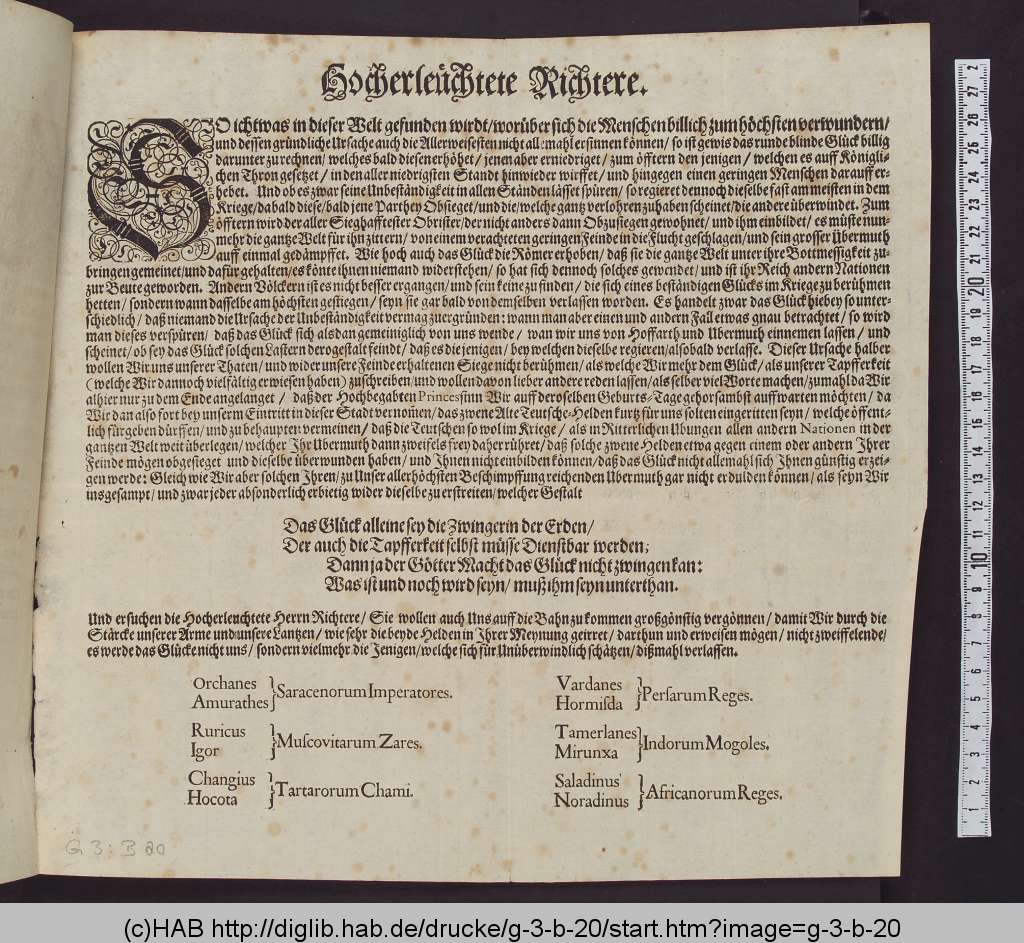 Hocherleüchtete Richtere.
SO ichtwas in dieser Welt gefunden wirdt/ worüber sich die Menschen billich zum höchsten verwundern/
und dessen gründliche Ursache auch die Allerweisesten nicht allemahl ersinnen können/ so ist gewis das runde blinde Glück billig
darunter zu rechnen/ welches bald diesen erhöhet/ jenen aber erniedriget/ zum öfftern den jenigen/ welchen es auff Königli-
chen Thron gesetzet/ in den aller niedrigsten Standt hinwieder wirffet/ und hingegen einen geringen Menschen darauff er-
hebet. Und ob es zwar seine Unbeständigkeit in allen Ständen lässet spüren/ so regieret dennoch dieselbe fast am meisten in dem
Kriege/ da bald diese/ bald jene Parthey Obsieget/ und die/ welche gantz verlohren zu haben scheinet/ die andere überwindet. Zum
öfftern wird der aller Sieghafftester Obrister/ der nicht anders dann Obzusiegen gewohnet/ und ihm einbildet/ es müste nun-
mehr die gantze Welt für ihn zittern/ von einem verachteten geringen Feinde in die Flucht geschlagen/ und sein grosser Übermuth
auff einmal gedämpffet. Wie hoch auch das Glück die Römer erhoben/ daß sie die gantze Welt unter ihre Bottmessigkeit zu-
bringen gemeinet/ und dafür gehalten/ es könte ihnen niemand widerstehen/ so hat sich dennoch solches gewendet/ und ist ihr Reich andern Nationen
zur Beute geworden. Andern Völckern ist es nicht besser ergangen/ und sein keine zu finden/ die sich eines beständigen Glücks im Kriege zu berühmen
hetten/ sondern wann dasselbe am höchsten gestiegen/ seyn sie gar bald von demselben verlassen worden. Es handelt zwar das Glück hiebey so unter-
schiedlich/ daß niemand die Ursache der Unbeständigkeit vermag zuergründen: wann man aber einen und andern Fall etwas gnau betrachtet/ so wird
man dieses verspüren/ daß das Glück sich alsdan gemeiniglich von uns wende/ wan wir uns von Hoffarth und Ubermuth einnemen lassen/ und
scheinet/ ob sey das Glück solchen Lastern derogestalt feindt/ daß es die jenigen/ bey welchen dieselbe regieren/ alsobald verlasse. Dieser Ursache halber
wollen Wir uns unserer Thaten/ und wider unsere Feinde erhaltenen Siege nicht berühmen/ als welche Wir mehr dem Glück/ als unserer Tapfferkeit
(welche Wir dannoch vielfältig erwiesen haben) zuschreiben/ und wollen davon lieber andere reden lassen/ als selber viel Worte machen/ zumahl da Wir
alhier nur zu dem Ende angelanget/ daß der Hochbegabten Princessinn Wir auff deroselben Geburts-Tage gehorsambst auffwarten möchten/ da
Wir dan also fort bey unserm Eintritt in dieser Stadt vernom̃en/ das zwene Alte Teutsche-Helden kurtz für uns solten eingeritten seyn/ welche öffent-
lich fürgeben dürffen/ und zu behaupten vermeinen/ daß die Teutschen so wol im Kriege/ als in Ritterlichen Ubungen allen andern Nationen in der
gantzen Welt weit überlegen/ welcher Ihr Ubermuth dann zweifels frey daher rühret/ daß solche zwene Helden etwa gegen einem oder andern Ihrer
Feinde mögen obgesieget und dieselbe überwunden haben/ und Ihnen nicht einbilden können/ daß das Glück nicht allemahl sich Ihnen günstig erzei-
gen werde: Gleich wie Wir aber solchen Ihren/ zu Unser allerhöchsten Beschimpffung reichenden Ubermuth gar nicht erdulden können/ als seyn Wir
insgesampt/ und zwar jeder absonderlich erbietig wider dieselbe zu erstreiten/ welcher Gestalt
Das Glück alleine sey die Zwingerin der Erden/
Der auch die Tapfferkeit selbst müsse Dienstbar werden;
Dann ja der Götter Macht das Glück nicht zwingen kan:
Was ist und noch wird seyn/ muß ihm seyn unterthan.
Und ersuchen die Hocherleuchtete Herrn Richtere/ Sie wollen auch Uns auff die Bahn zu kommen großgönstig vergönnen/ damit Wir durch die
Stärcke unserer Arme und unsere Lantzen/ wie sehr die beyde Helden in Ihrer Meynung geirret/ darthun und erweisen mögen/ nicht zweiffelende/
es werde das Glücke nicht uns/ sondern vielmehr die Jenigen/ welche sich für Unüberwindlich schätzen/ dißmahl verlassen.
Orchanes
Amurathes } Saracenorum Imperatores.
Ruricus
Igor } Muscovitarum Zares.
Changius
Hocota } Tartarorum Chami.
Vardanes
Hormisda } Persarum Reges.
Tamerlanes
Mirunxa } Indorum Mogoles.
Saladinus
Noradinus } Africanorum Reges.
G 3 : B 20
1 2 3 4 5 6 7 8 9 10 11 12 13 14 15 16 17 18 19 20 21 22 23 24 25 26 27 2
(c)HAB http://diglib.hab.de/drucke/g-3-b-20/start.htm?image=g-3-b-20